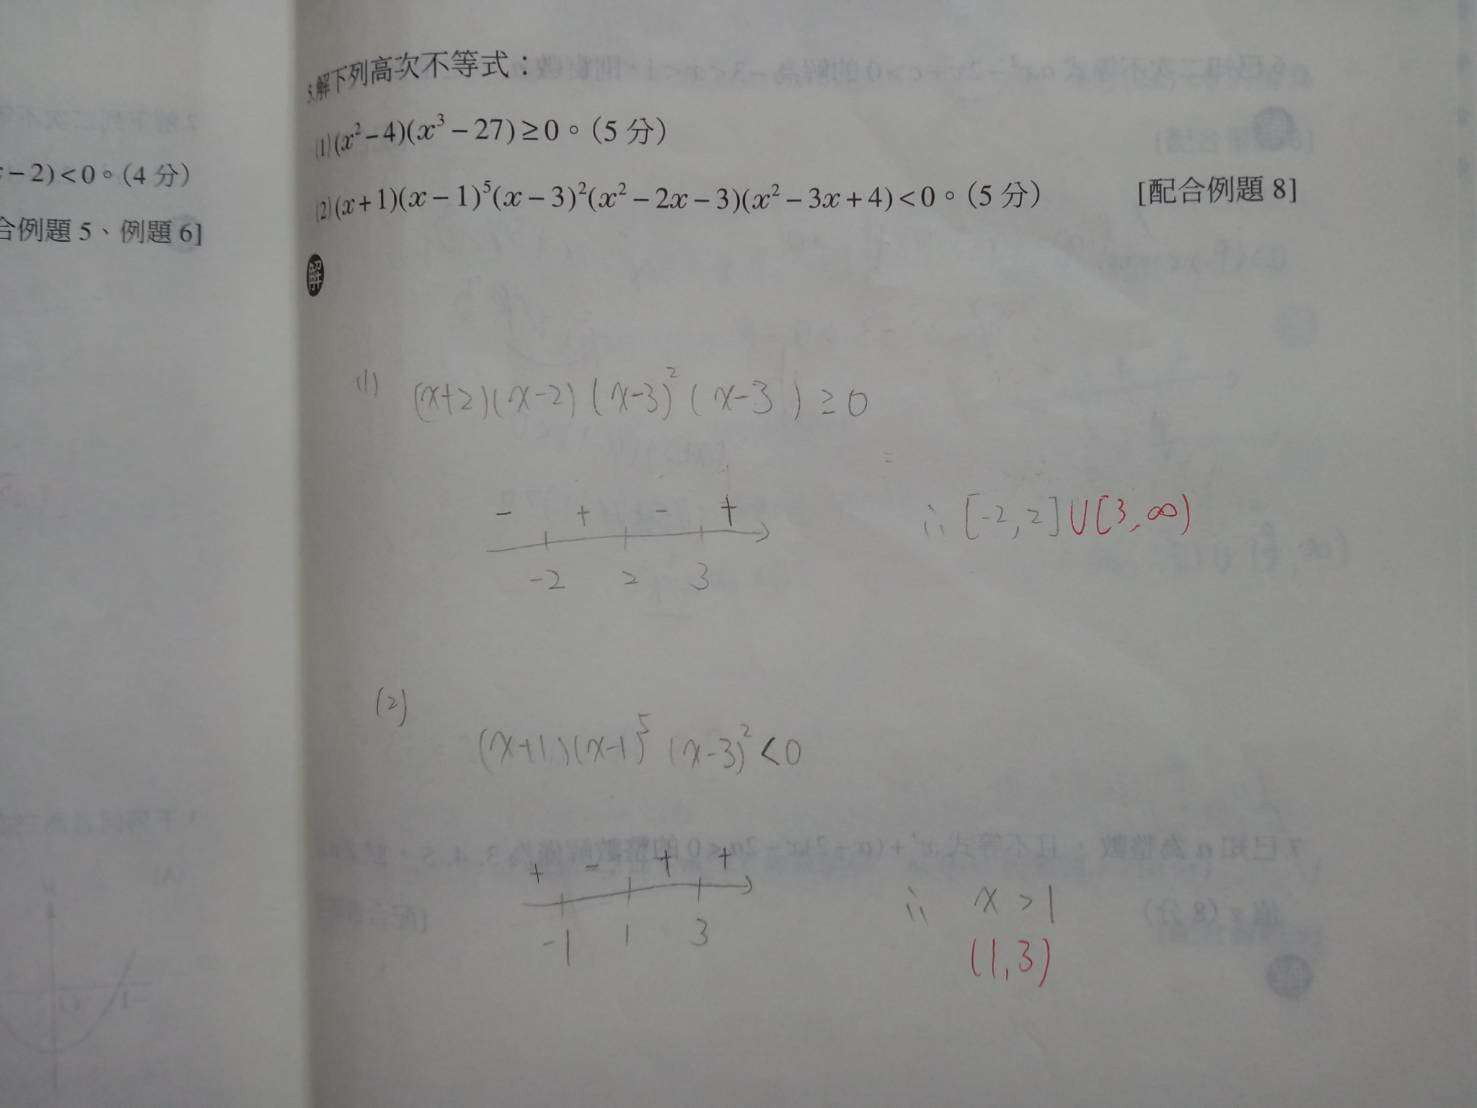 -2)<0。(4 分)
合例題 5、例題 6]
5.解下列高次不等式：
(1)(x²-4)(x³-27)≥0。(5 分)
(2)(x+1)(x-1)⁵(x-3)²(x²-2x-3)(x²-3x+4)<0。(5 分) [配合例題 8]
解
(1) (x+2)(x-2)(x-3)²(x-3)≥0
- + - +
-2 2 3
∴ [-2,2]∪[3,∞)
(2)
(x+1)(x-1)⁵(x-3)²<0
+ - + +
-1 1 3
∴ x>1
(1,3)